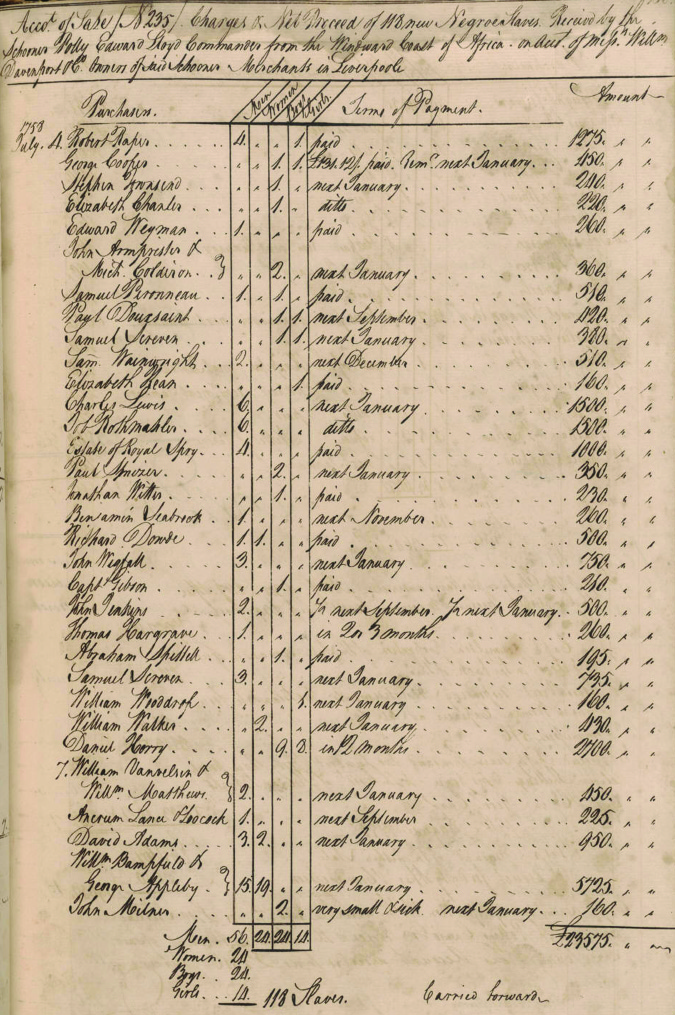 Accot. of Sale / No 235 / Charges & Net Proceed of 118 new Negroe Slaves. Received by the
Schooner Polly Edward Lloyd Commander from the Windward Coast of Africa on Acct. of Messrs. Willm.
Davenport & Co. Owners of said Schooner Merchants in Liverpoole
Purchasers. Men Women Boys Girls Terms of Payment. Amount
1758
July. 4. Robert Raper 4. „ „ „ paid 1275. „ „
George Cooper „ „ 1. 1. £131.12/. paid. remr. next January. 450. „ „
Stephen Townsend „ „ 1. „ next January 240. „ „
Elizabeth Chanler „ „ 1. „ ditto 220. „ „
Edward Weyman 1. „ „ „ paid 260. „ „
John Armprister &
Mich. Coldiron } „ „ 2. „ next January 360. „ „
Samuel Peronneau 1. „ 1. „ paid 510. „ „
Paul Douxsaint „ „ 1. 1. next September 420. „ „
Samuel Screven „ „ 1. 1. next January 380. „ „
Sam. Wainwright 2. „ „ „ next December 510. „ „
Elizabeth Bean „ „ „ 1. paid 160. „ „
Charles Lewis 6. „ „ „ next January 1500. „ „
Job Rothmahler 6. „ „ „ ditto 1500. „ „
Estate of Royal Spry 4. „ „ „ paid 1000. „ „
Paul „ „ 2. „ next January 350. „ „
Jonathan Witter „ „ 1. „ paid 230. „ „
Benjamin Seabrook 1. „ „ „ next November 260. „ „
Richard Dowde 1. 1. „ „ paid 500. „ „
John Wigfall 3. „ „ „ next January 750. „ „
Capt. Gibson „ „ 1. „ paid 210. „ „
John Jenkins 2. „ „ „ ½ next September ½ next January. 500. „ „
Thomas Hargrave 1. „ „ „ in 2 or 3 months. 260. „ „
Abraham Spidell „ „ 1. „ paid 195. „ „
Samuel Screven 3. „ „ „ next January 735. „ „
William Wooddrop „ „ „ 1. next January 160. „ „
William Walker „ 2. „ „ next January 430. „ „
Daniel Horry „ „ 9. 8. in 12 months 2700. „ „
7. William Vanvelsin &
Willm. Matthews } 2. „ „ „ next January 450. „ „
Ancrum Lance & Loocock 1. „ „ „ next September 225. „ „
David Adams 3. 2. „ „ next January 950. „ „
Willm. Bampfield &
George Appleby } 15. 19. „ „ next January 5725. „ „
John Milner „ „ 2. „ very small & sick next January 160. „ „
Men. 56. 24. 24. 14. £23575. „ „
Women. 24
Boys. 24.
Girls. 14. 118 Slaves. Carried forward